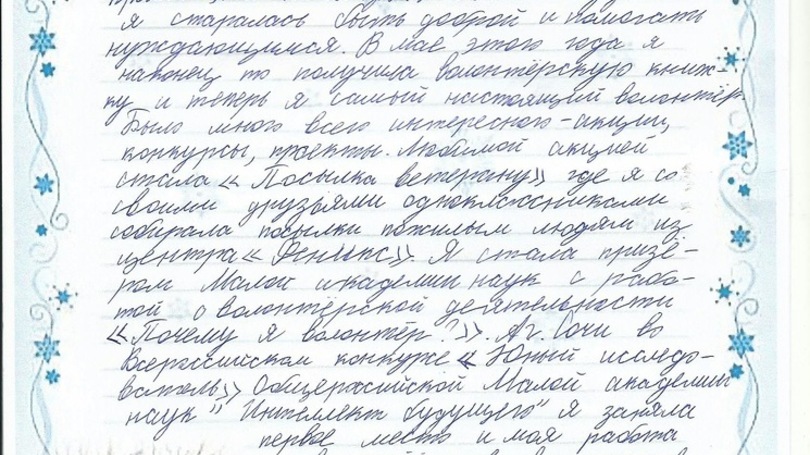 я старалась быть доброй и помогать
нуждающимся. В мае этого года я
наконец то получила волонтёрскую книж-
ку и теперь я самый настоящий волонтёр.
Было много всего интересного-акции,
конкурсы, проекты. Любимой акцией
стала «Посылка ветерану» где я со
своими друзьями одноклассниками
собирала посылки пожилым людям из
центра «Феникс». Я стала призё-
ром Малой академии наук с рабо-
той о волонтёрской деятельности
«Почему я волонтёр?». А г. Сочи во
Всероссийском конкурсе «Юный исследо-
ватель» Общероссийской Малой академии
наук "Интеллект будущего" я заняла
первое место и моя работа